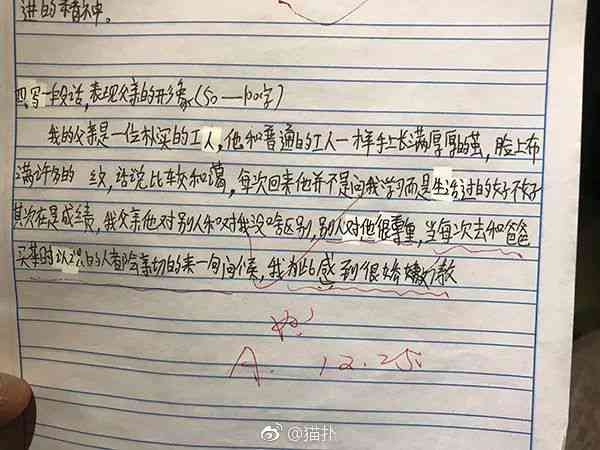 进的精神。
四.写一段话,表现父亲的形象(50—100字)
我的父亲是一位朴实的工人,他和普通的工人一样手上长满厚厚的茧,脸上布
满许多的 纹,话说比较和蔼,每次回来他并不是问我学习而是生活过的好不好
其次在是成绩,我父亲他对别人和对我没啥区别,别人对他很尊重,当每次去和爸爸
买菜时 认识的人都会亲切的来一句问候,我为此感到很骄傲
A. 12.25
@猫扑